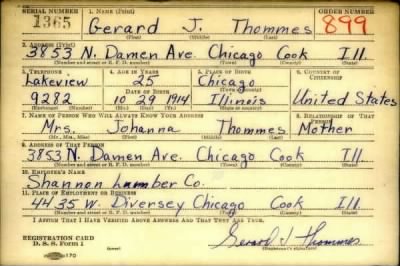 SERIAL NUMBER 1. NAME (Print) ORDER NUMBER
1365 Gerard J. Thommes 899
(First) (Middle) (Last)
2. ADDRESS (Print)
3853 N. Damen Ave. Chicago Cook Ill.
(Number and street or R. F. D. number) (Town) (County) (State)
3. TELEPHONE 4. AGE IN YEARS 5. PLACE OF BIRTH 6. COUNTRY OF CITIZENSHIP
Lakeview 25 Chicago
DATE OF BIRTH (Town or county)
9282 10 29 1914 Illinois United States
(Exchange) (Number) (Mo.) (Day) (Yr.) (State or country)
7. NAME OF PERSON WHO WILL ALWAYS KNOW YOUR ADDRESS 8. RELATIONSHIP OF THAT PERSON
Mrs. Johanna Thommes Mother
(Mr., Mrs., Miss) (First) (Middle) (Last)
9. ADDRESS OF THAT PERSON
3853 N. Damen Ave. Chicago Cook Ill.
(Number and street or R. F. D. number) (Town) (County) (State)
10. EMPLOYER'S NAME
Shannon Lumber Co.
11. PLACE OF EMPLOYMENT OR BUSINESS
4435 W. Diversey Chicago Cook Ill.
(Number and street or R. F. D. number) (Town) (County) (State)
I AFFIRM THAT I HAVE VERIFIED ABOVE ANSWERS AND THAT THEY ARE TRUE.
REGISTRATION CARD
D. S. S. Form 1 Gerard J. Thommes
(Registrant's signature)